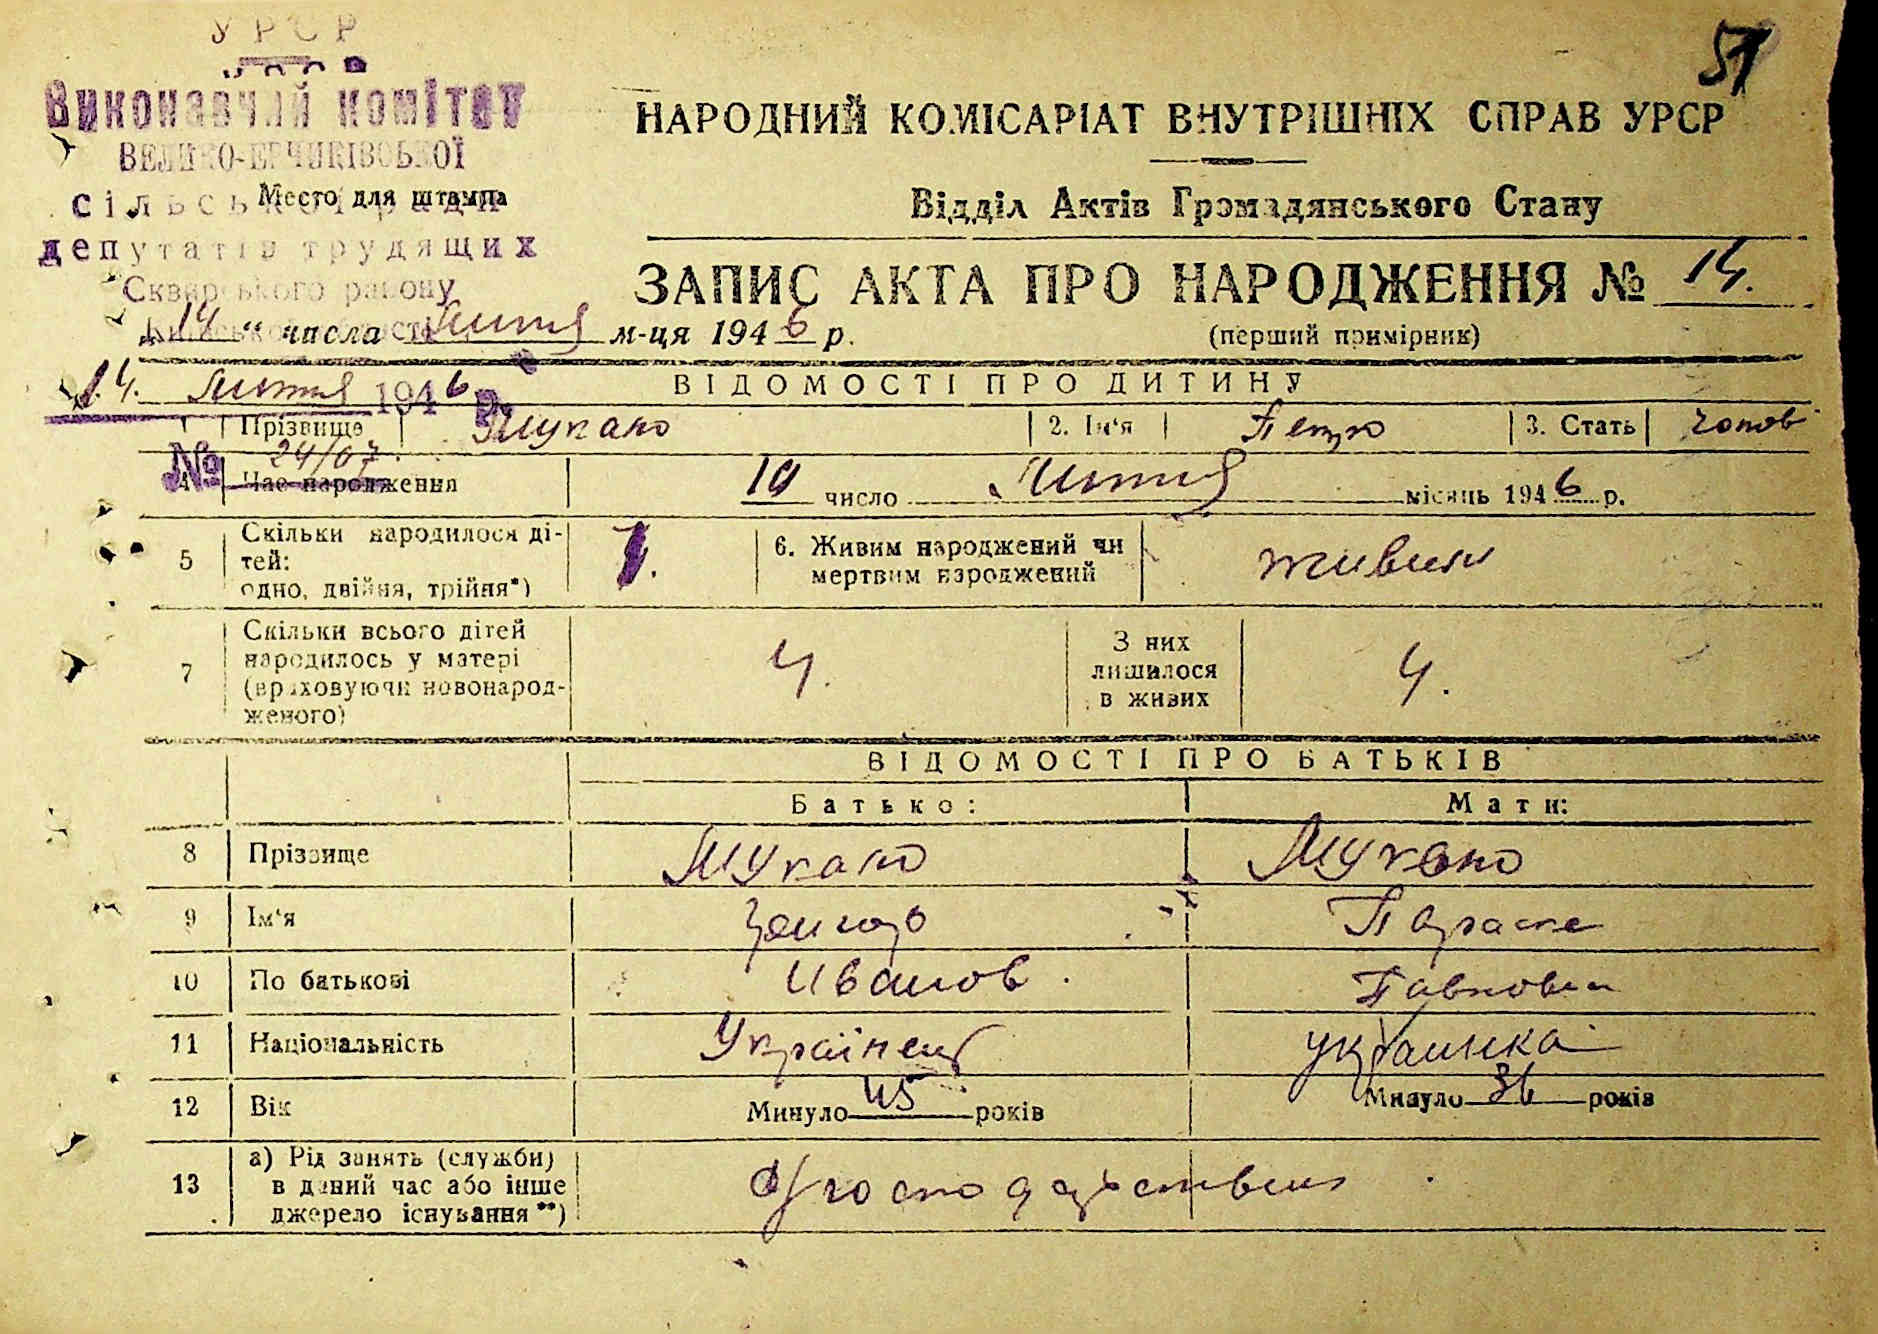 УРСР
51
Виконавчий комітет
ВЕЛИКО-ЕРЧИКІВСЬКОЇ
сільської ради
депутатів трудящих
Сквирського району
Київської області
Место для штампа
НАРОДНИЙ КОМІСАРІАТ ВНУТРІШНІХ СПРАВ УРСР
Відділ Актів Громадянського Стану
ЗАПИС АКТА ПРО НАРОДЖЕННЯ № 14.
(перший примірник)
„14“ числа Лютня м-ця 1946 р.
14. Лютня 1946 р.
№ 24/07
ВІДОМОСТІ ПРО ДИТИНУ
Прізвище 2. Ім'я Петро 3. Стать чолов
4 Час народження 10 число Лютня місяць 1946 р.
5 Скільки народилося ді-
тей:
одно, двійня, трійня*) 1.
6. Живим народжений чи
мертвим народжений живим
7 Скільки всього дітей
народилось у матері
(враховуючи новонарод-
женого) 4.
З них
лишилося
в живих 4.
ВІДОМОСТІ ПРО БАТЬКІВ
Батько: Мати:
8 Прізвище
9 Ім'я Параска
10 По батькові Іванов Павловна
11 Національність Українець украинка
12 Вік Минуло 45 років Минуло 36 років
13 а) Рід занять (служби)
в даний час або інше
джерело існування**)